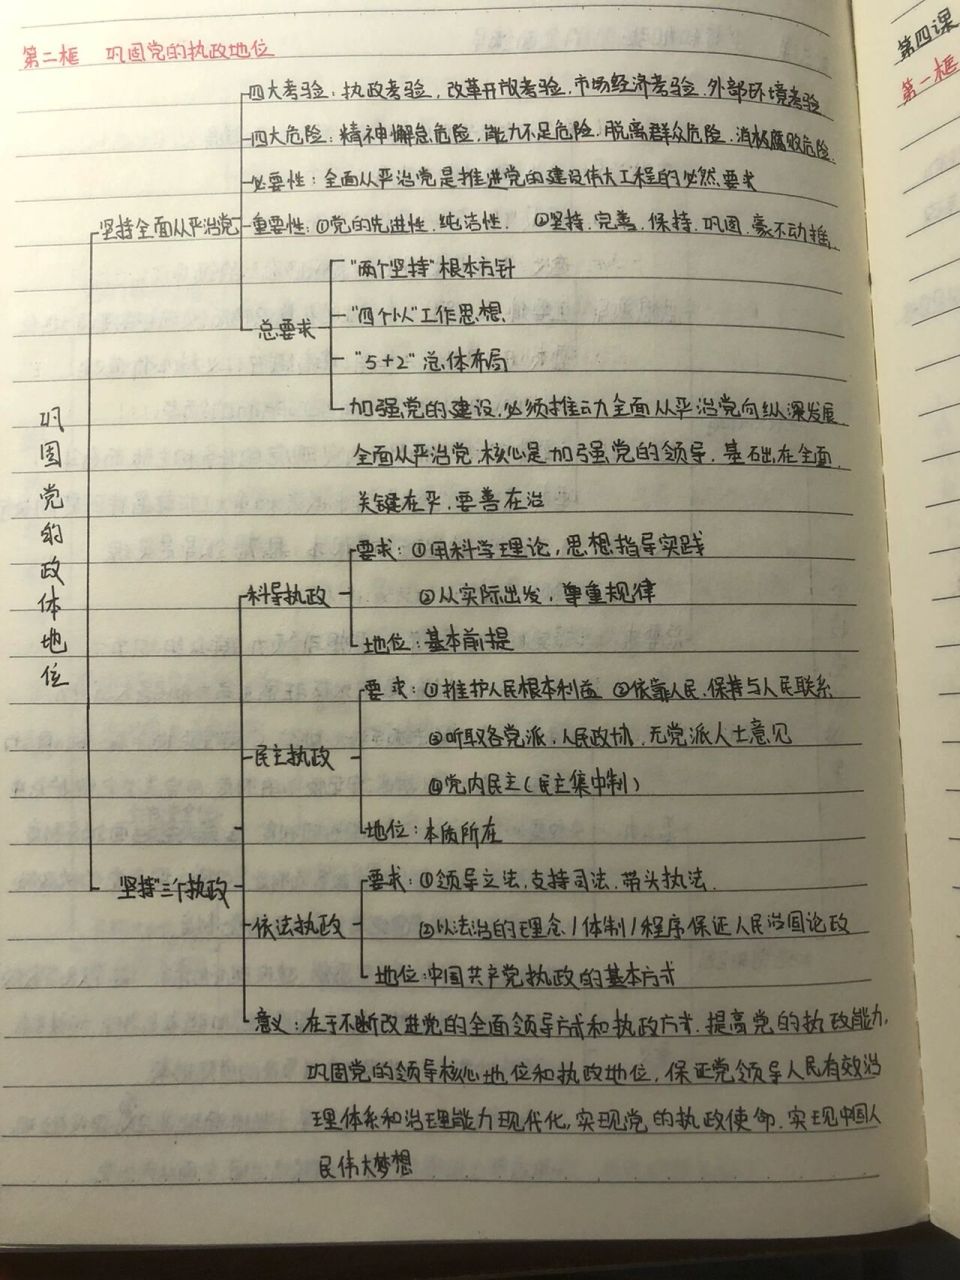 第二框 巩固党的执政地位
四大考验：执政考验，改革开放考验，市场经济考验，外部环境考验
四大危险：精神懈怠危险，能力不足危险，脱离群众危险，消极腐败危险
必要性：全面从严治党是推进党的建设伟大工程的必然要求
坚持全面从严治党
重要性：①党的先进性、纯洁性． ②坚持、完善、保持、巩固、毫不动摇
总要求
"两个坚持"根本方针
"四个以"工作思想
"5+2"总体布局
加强党的建设，必须推动全面从严治党向纵深发展
全面从严治党，核心是加强党的领导，基础在全面，
关键在严，要害在治
巩固党的政体地位
科导执政
要求：①用科学理论，思想指导实践
②从实际出发，尊重规律
地位：基本前提
民主执政
要求：①维护人民根本利益 ②依靠人民，保持与人民联系
③听取各党派，人民政协，无党派人士意见
④党内民主（民主集中制）
地位：本质所在
坚持"三个执政
依法执政
要求：①领导立法，支持司法，带头执法．
②以法治的理念/体制/程序保证人民治国论政
地位：中国共产党执政的基本方式
意义：在于不断改进党的全面领导方式和执政方式，提高党的执政能力，
巩固党的领导核心地位和执政地位，保证党领导人民有效治
理体系和治理能力现代化，实现党的执政使命，实现中国人
民伟大梦想
第四课
第一框